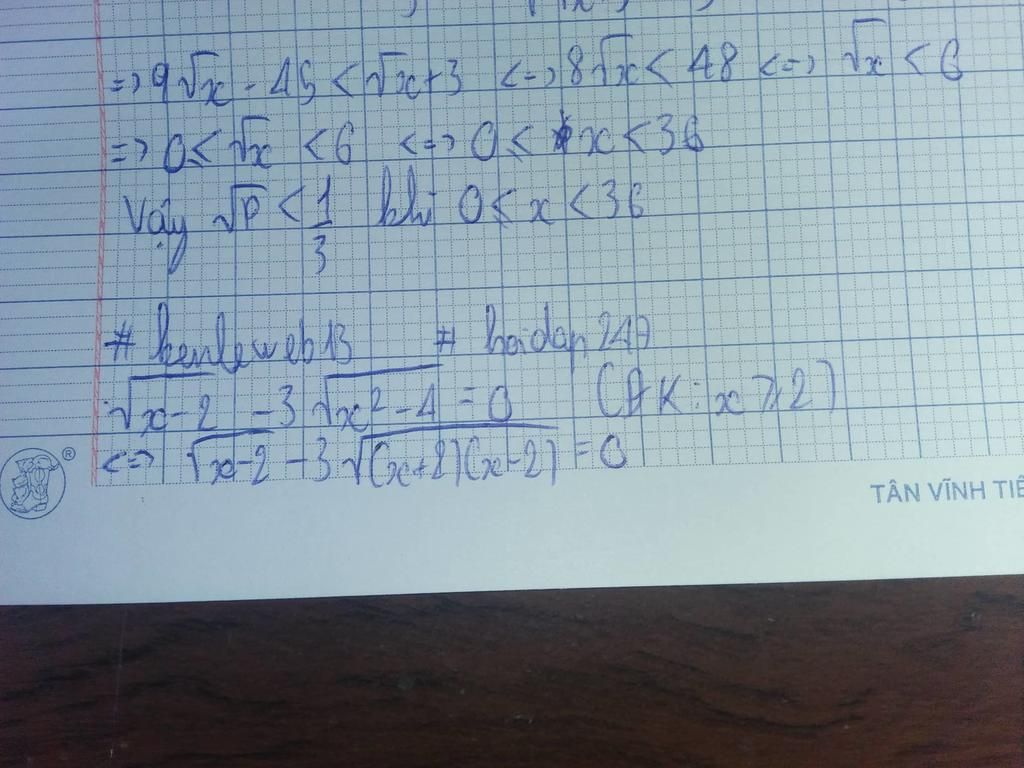 => 9√x - 45 < √x + 3 <=> 8√x < 48 <=> √x < 6
=> 0 ≤ √x < 6 <=> 0 ≤ x < 36
Vậy √P < 1/3 khi 0 ≤ x < 36
# kenleweb13 # hoidap247
√x-2 - 3√x²-4 = 0 (ĐK: x ≥ 2)
<=> √x-2 - 3√(x+2)(x-2) = 0
®
TÂN VĨNH TIẾ